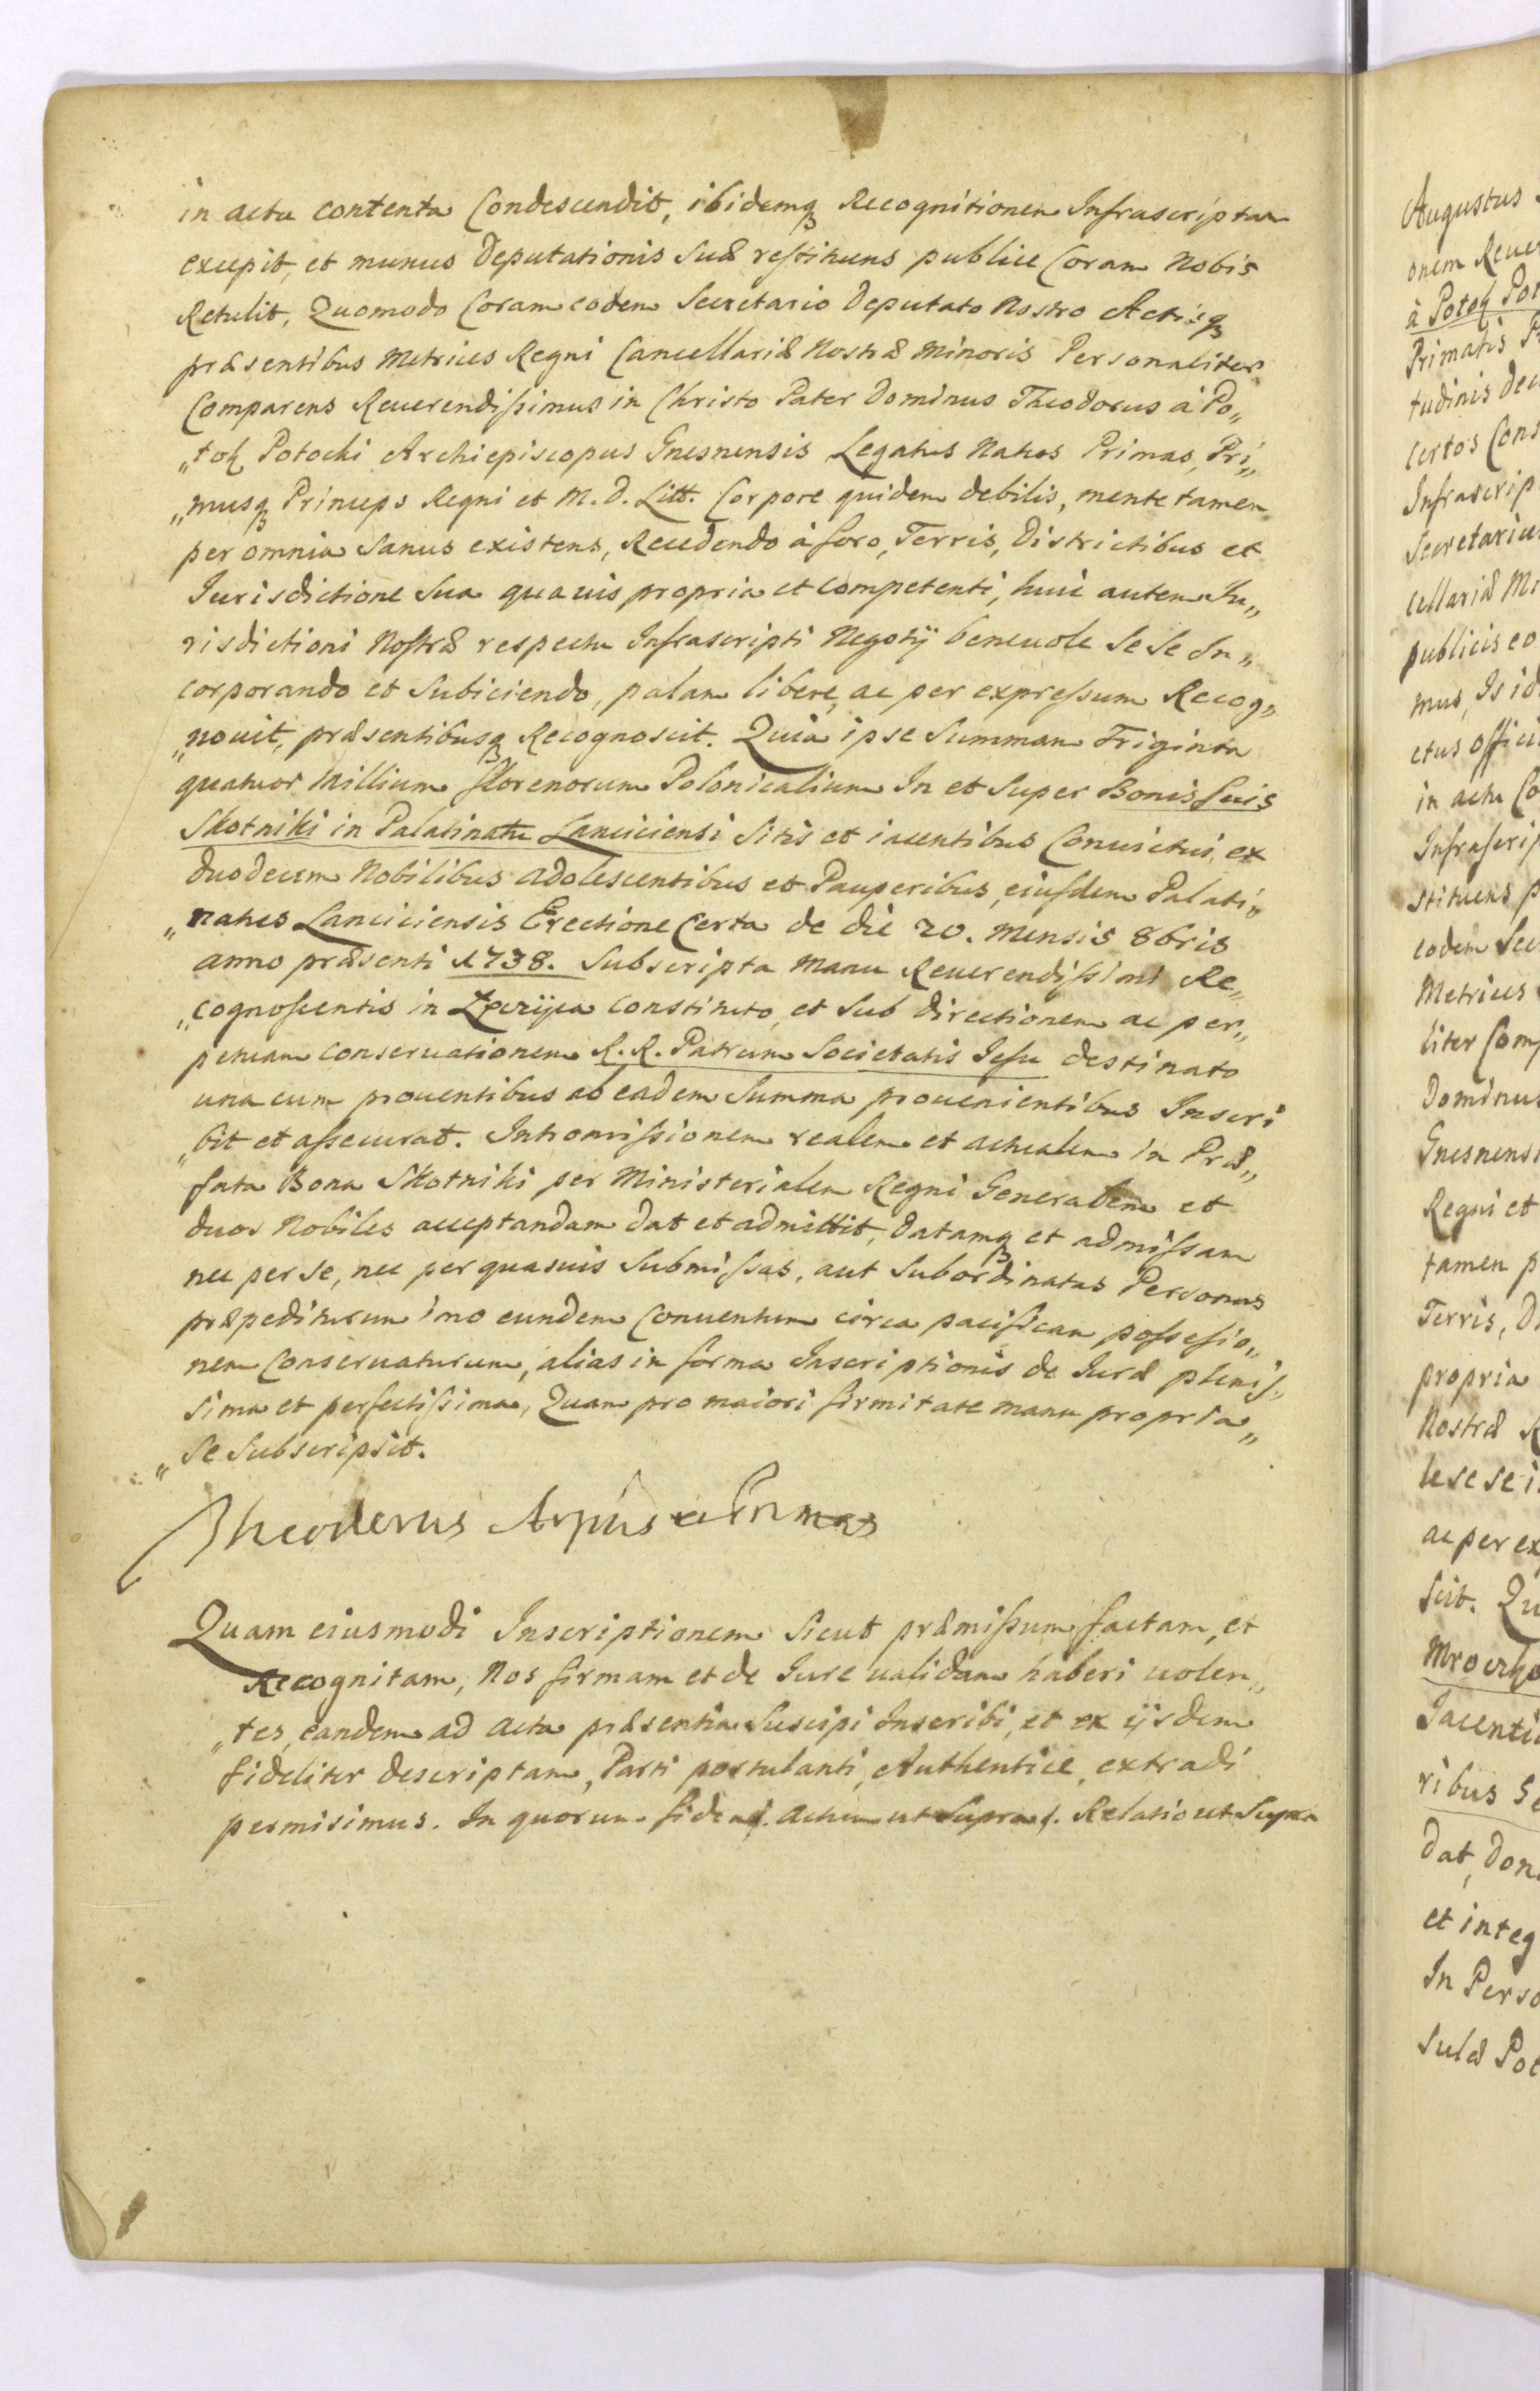 in actu contenta Condescendit, ibidemq3 Recognitionem Infrascriptam
excepit, et munus Deputationis Suæ restituens publice Coram Nobis
Retulit, Quomodo Coram eodem Secretario Deputato Nostro Actisq3
præsentibus Metrices Regni Cancellariæ Nostræ Minoris Personaliter
Comparens Reuerendissimus in Christo Pater Dominus Theodorus à Po„
„tok Potocki Archiepiscopus Gnesnensis Legatus Natus Primas, Pri„
„musq3 Princeps Regni et M. D. Litt. Corpore quidem debilis, mente tamen
per omnia Sanus existens, Recedendo à foro, Terris, Districtibus et
Jurisdictione Sua quauis propria et competenti, huic autem Ju„
risdictioni Nostræ respectu Infrascripti Negotij beneuole Se Se In„
corporando et Subiciendo, palam libere, ac per expressum Recog„
„nouit, præsentibusq3 Recognoscit. Quia ipse Summam Triginta
quatuor Millium florenorum Polonicalium In et Super Bonis Suis
Skotniki in Palatinatu Lanciciensi Sitis et iacentibus Conuictui, ex
duodecem Nobilibus adolescentibus et Pauperibus, eiusdem Palati„
„natus Lanciciensis Erectione Certa de die 20. Mensis 8bris
anno præsenti 1738. Subscripta Manu Reuerendissimi Re„
„cognoscentis in constituto, et Sub directionem ac per„
petuam conseruationem R. R. Patrum Societatis Jesu destinato
una cum prouentibus ab eadem Summa prouenientibus Inscri
„bit et assecurat. Intromissionem realem et actualem in Præ„
fata Bona Skotniki per Ministerialem Regni Generalem et
duos Nobiles acceptandam dat et admittit, datamq3 et admissam
nec per se, nec per quasuis Submissas, aut Subordinatas Personas
præpediturum imo eundem Conuentum circa pacificam possessio„
nem Conseruaturum, alias in forma Inscriptionis de Juræ plenis„
sima et perfectissima, Quam pro maiori firmitate manu propria„
„Se Subscripsit.
Theodorus Arpūs Primas
Quam eiusmodi Inscriptionem Sicut præmissum factam, et
Recognitam, Nos firmam et de Jure ualidam haberi uolen„
„tes, eandem ad Acta præsentia Suscipi Inscribi, et ex ijsdem
fideliter descriptam, Parti postulanti, Authentice, extradi
permisimus. In quorum fidem. Actum ut Supra. Relatio ut Supra
Augustus
onem Reuer
à Potok Pot
Primatis
tudinis
certos Cons
Infrascrip
Secretariu
cellariæ Mi
publicis eo
mus, Is id
ctus offici
in actu Co
Infrascrip
stituens p
eodem Sec
Metrices
liter Comp
Dominus
Gnesnensi
Regni et
tamen p
Terris, Di
propria
Nostræ
le se se i
ac per ex
scit. Qu

Jacenti
ribus
dat, don
et integ
In Perso
sulæ Pot